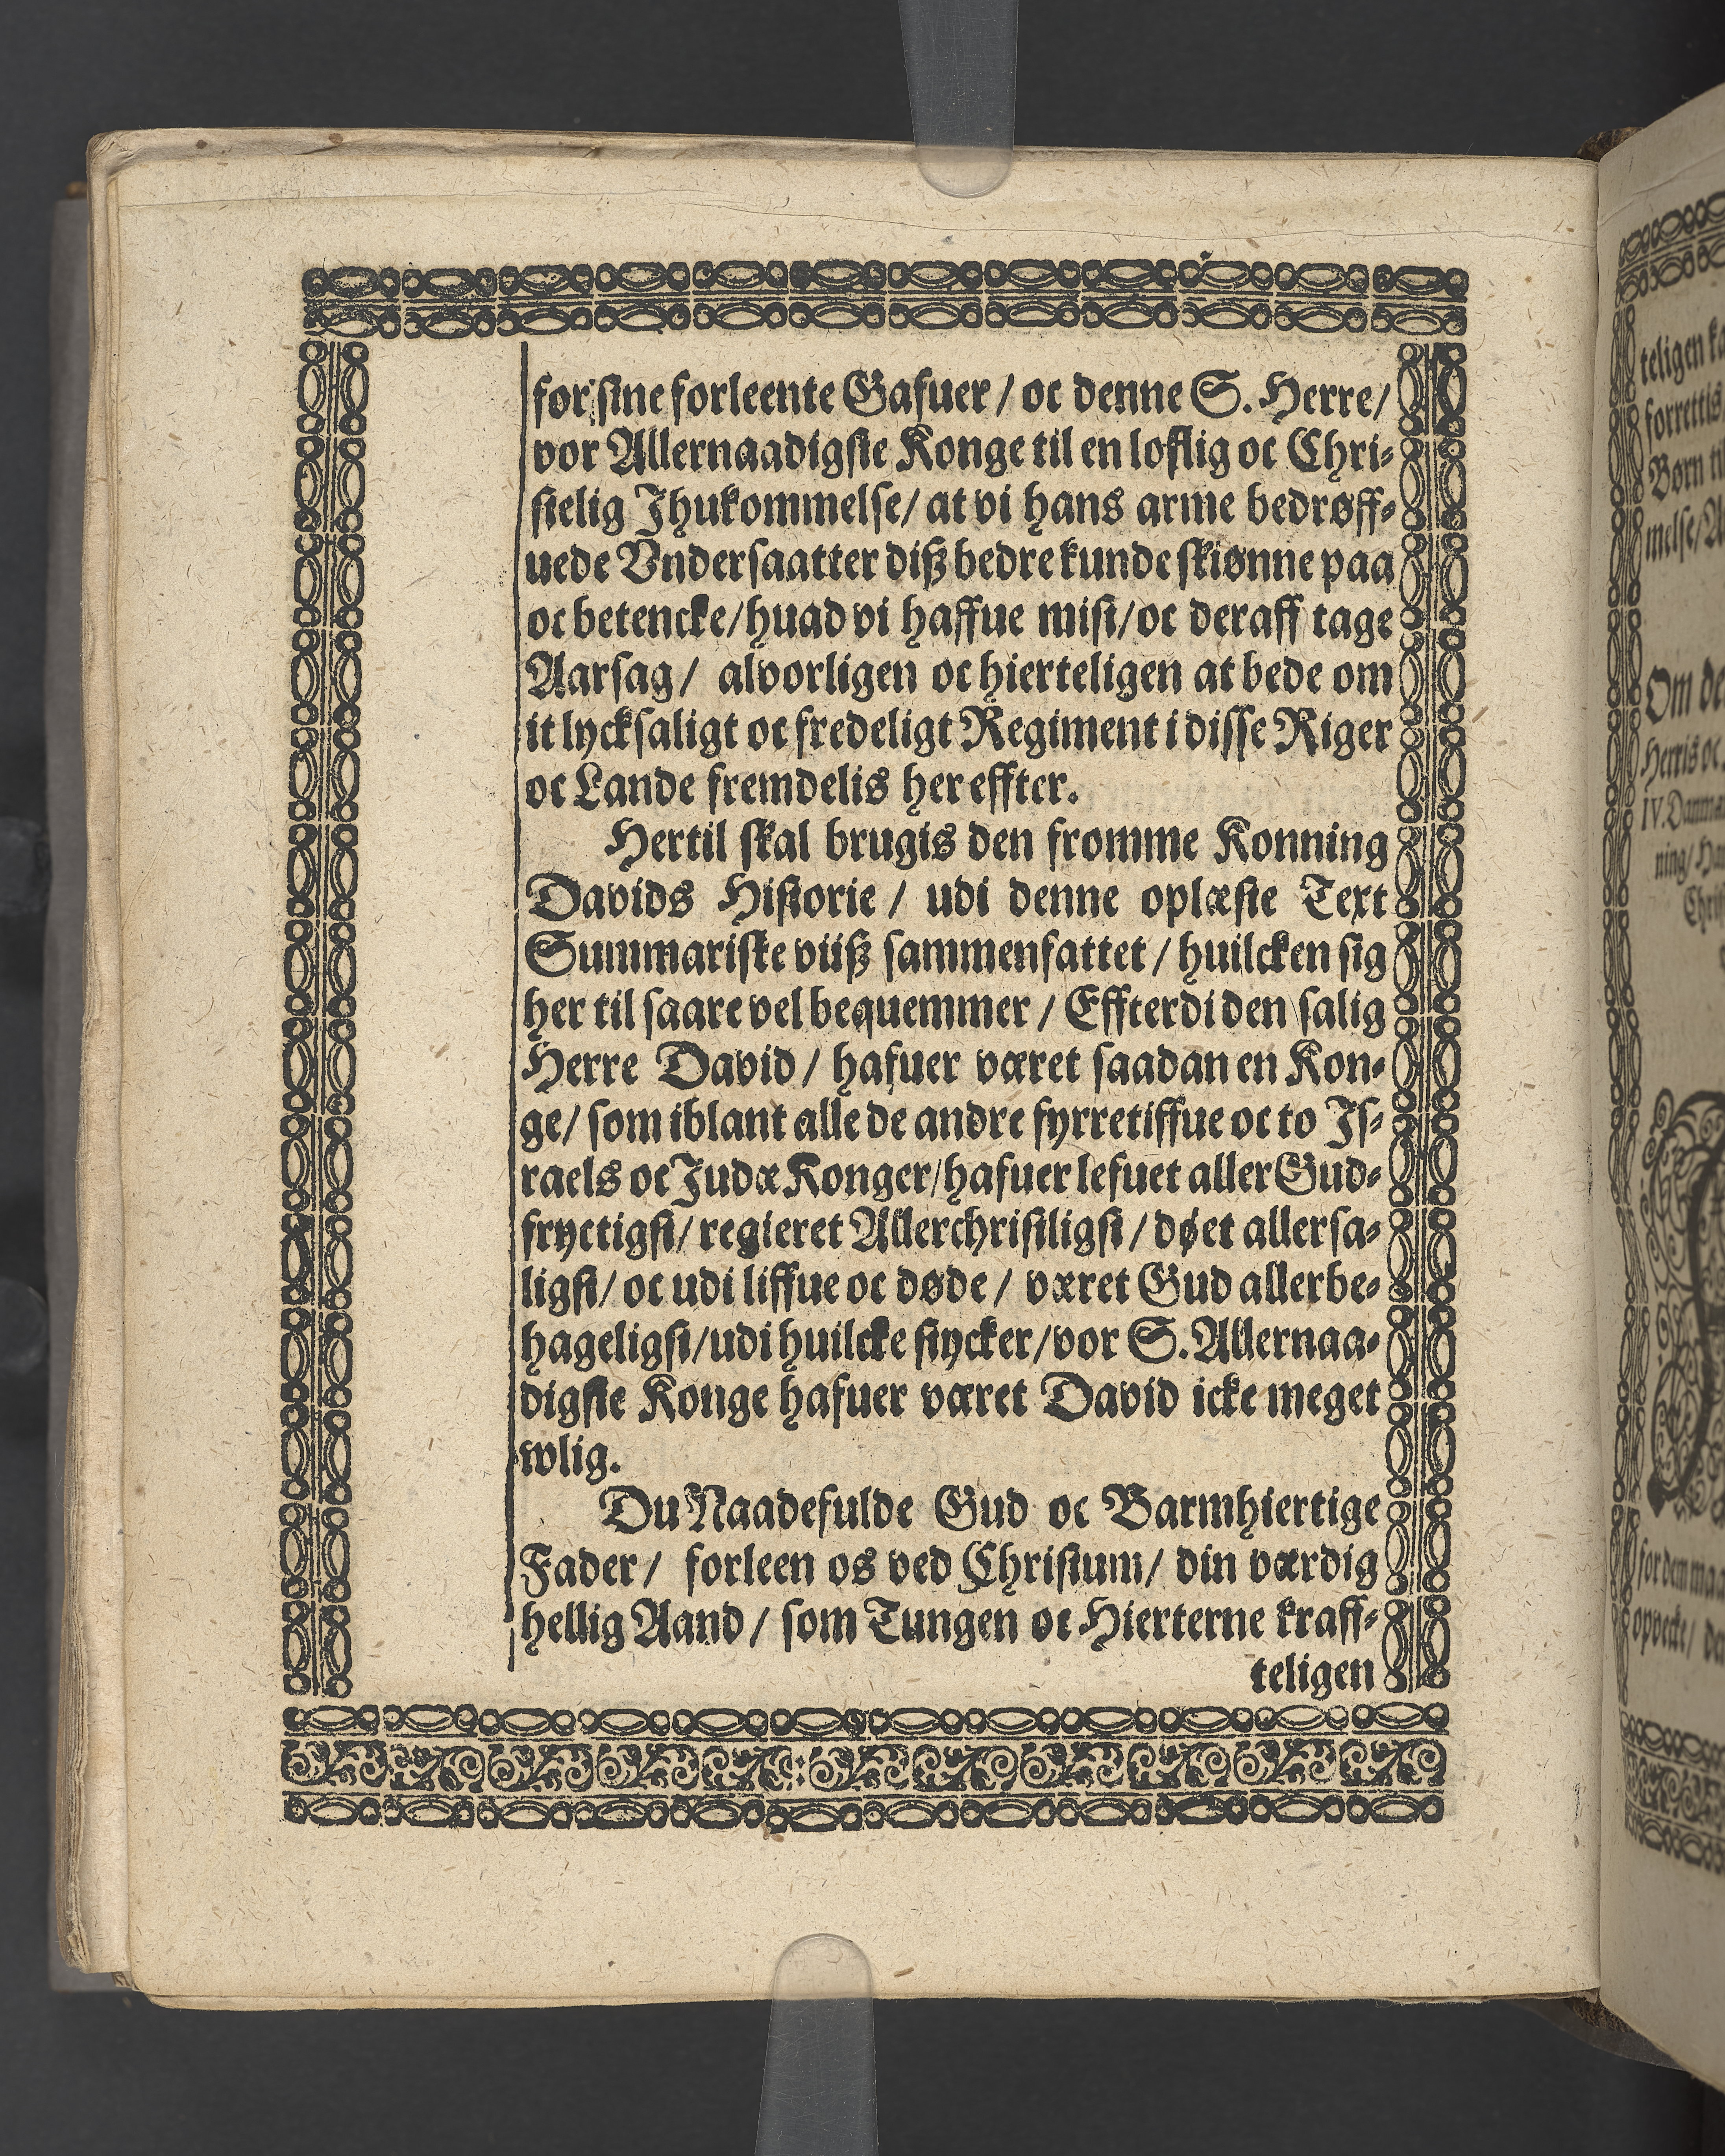 for sine forleente Gafuer / oc denne S. Herre /
vor Allernaadigste Konge til en loflig oc Chri-
stelig Ihukommelse / at vi hans arme bedrøff-
uede Vndersaatter diß bedre kunde skiønne paa
oc betencke / huad vi haffue mist / oc deraff tage
Aarsag / alvorligen oc hierteligen at bede om
it lycksaligt oc fredeligt Regiment i disse Riger
oc Lande fremdelis her effter.
Hertil skal brugis den fromme Konning
Davids Historie / udi denne oplæste Text
Summariske viiß sammenfattet / huilcken sig
her til saare vel bequemmer / Effterdi den salig
Herre David / hafuer været saadan en Kon-
ge / som iblant alle de andre fyrretiffue oc to Is-
raels oc Judæ Konger / hafuer lefuet aller Gud-
fryctigst / regieret Allerchristiligst / døet allersa-
ligst / oc udi liffue oc døde / været Gud allerbe-
hageligst / udi huilcke stycker / vor S. Allernaa-
digste Konge hafuer været David icke meget
wlig.
Du Naadefulde Gud oc Barmhiertige
Fader / forleen os ved Christum / din værdig
hellig Aand / som Tungen oc Hierterne kraff-
teligen
teligen
forrettis
Børn
melse /
Om
Herris oc
IV.
ning /
for den
opvecke /